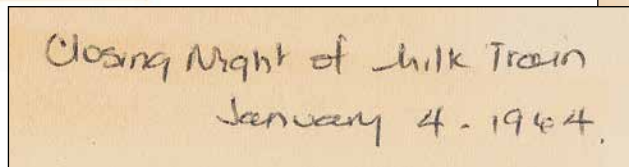 Closing Night of Milk Train
January 4 - 1964.